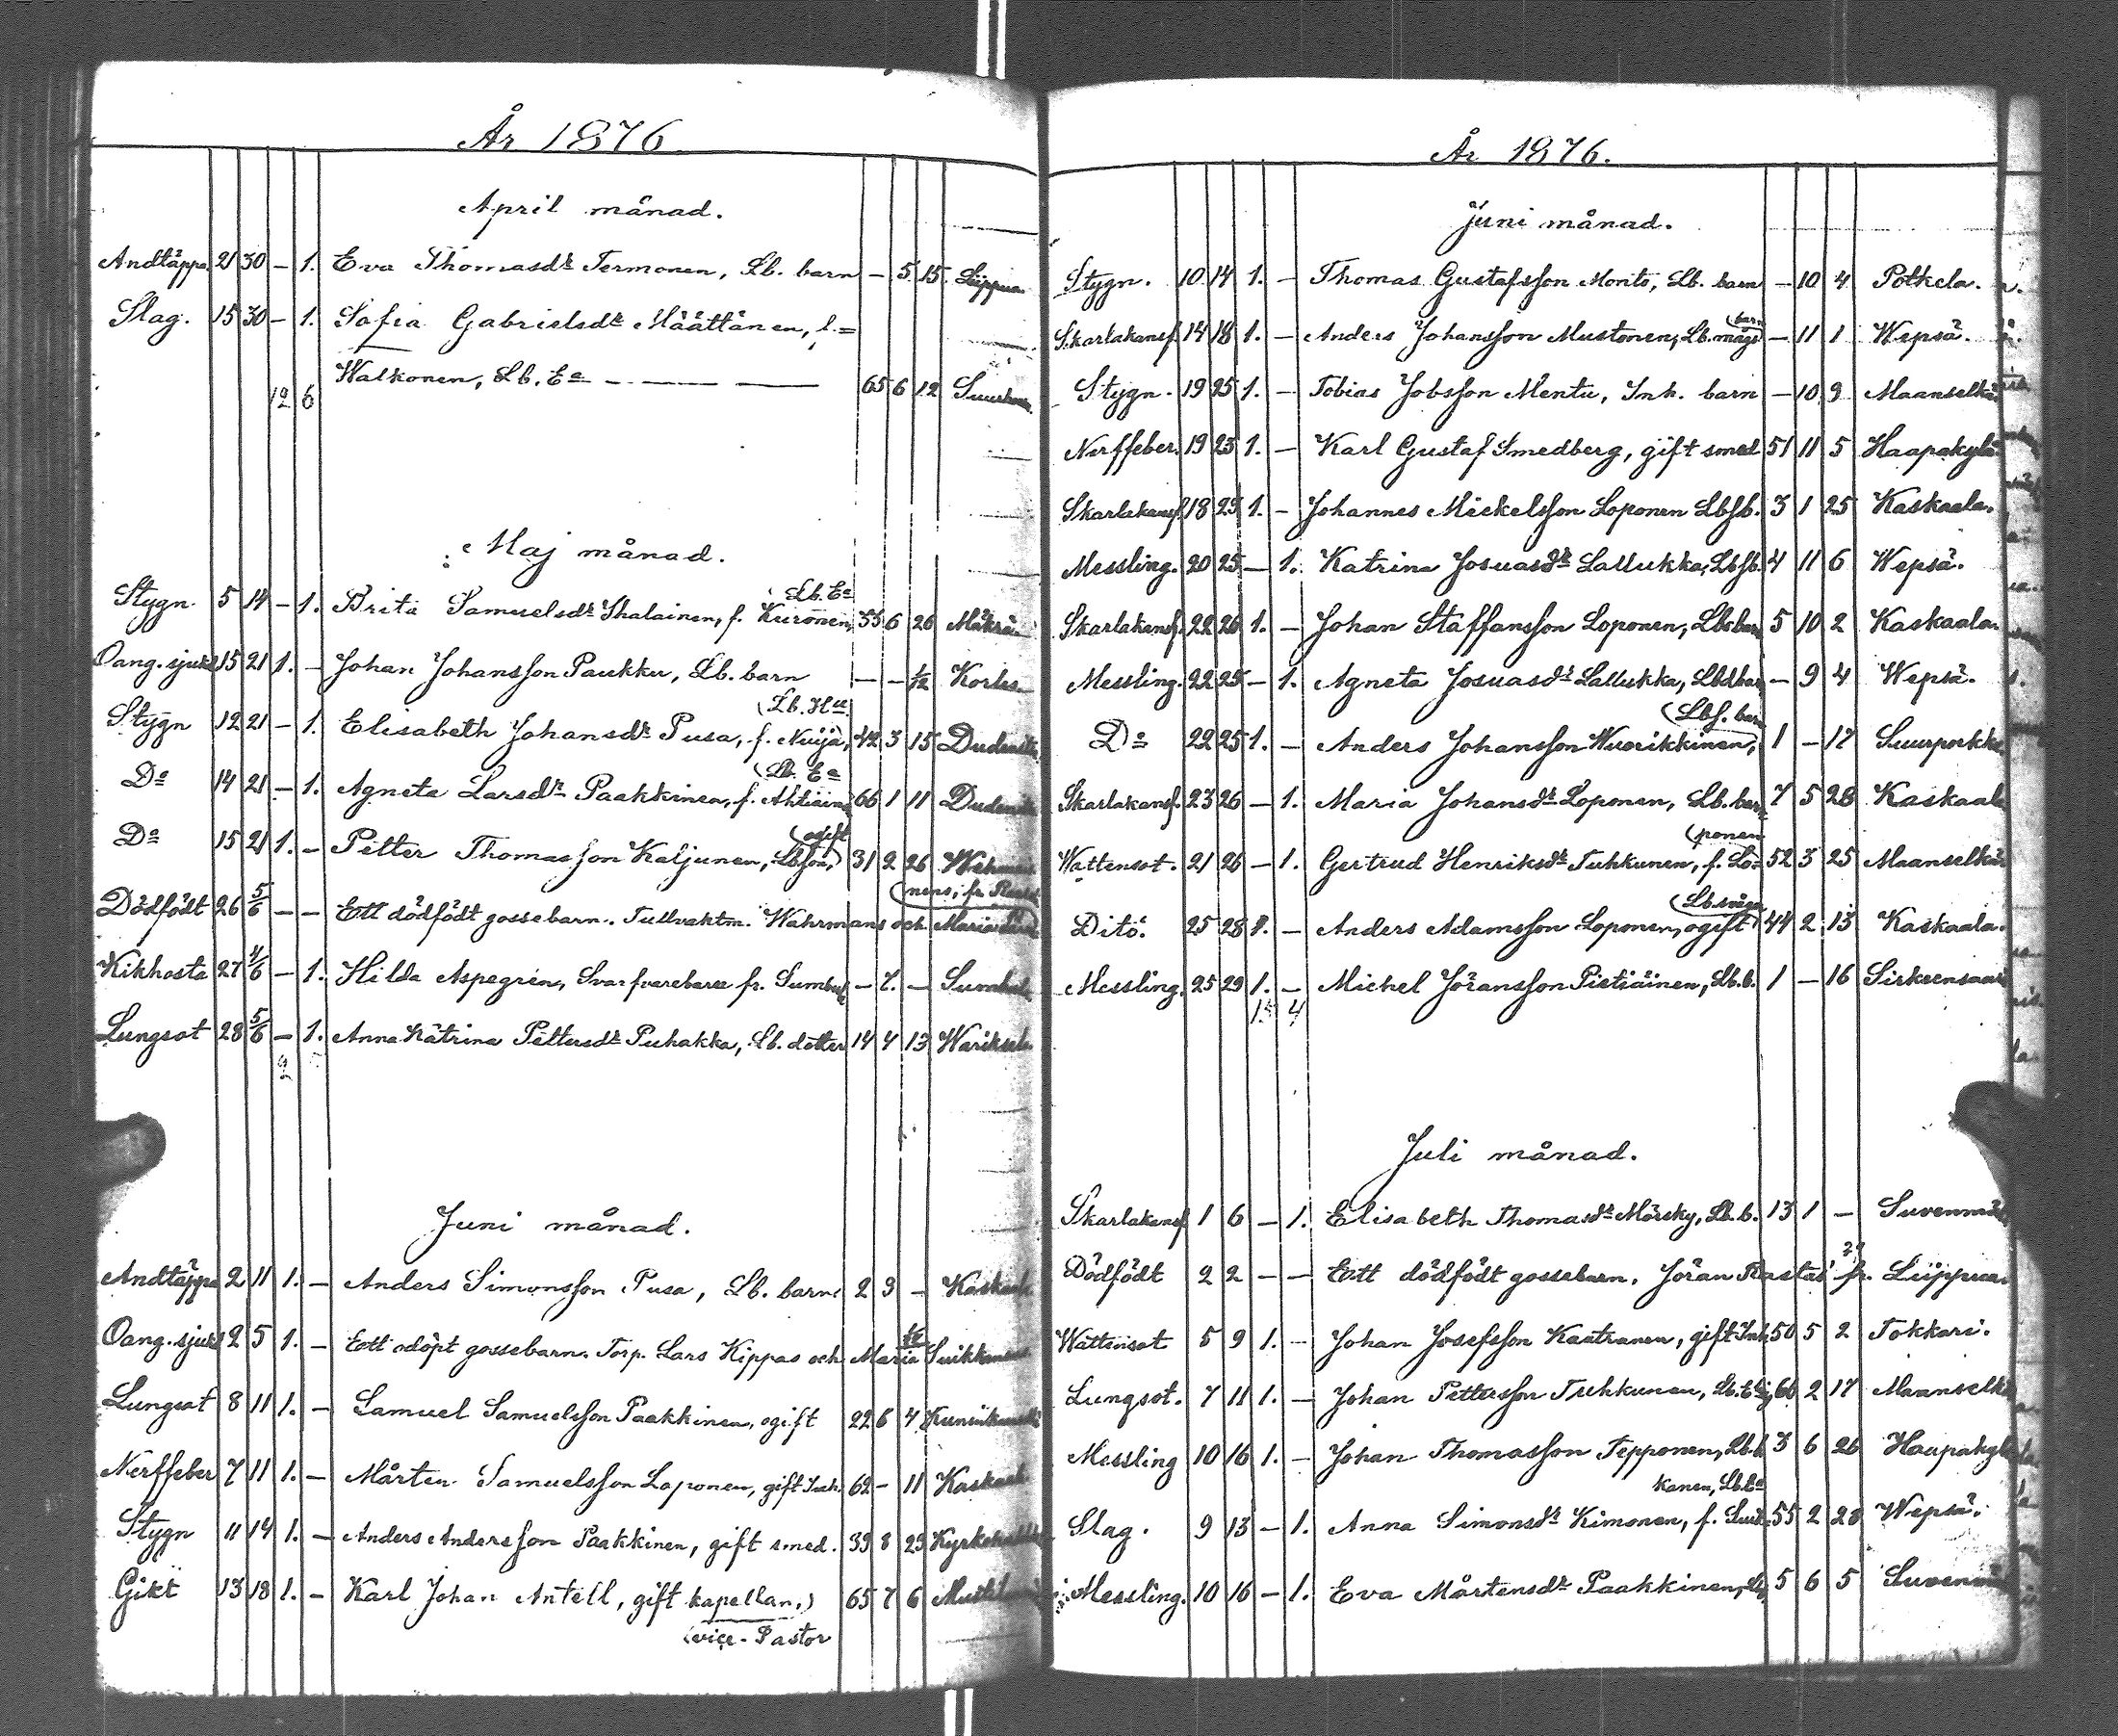 År 1876
April månad.
Andtäppa 21 30 – 1. Eva Thomasdr Termonen, Lb. barn – 5 15 Lippua
Slag. 15 30 – 1. Sofia Gabrielsdr Määttänen, f.=
Walkonen, Lb. Ea – – – 65 6 12
12 6
Maj månad.
Lb. Ea
Stygn. 5 14 – 1. Brita Samuelsdr Ihalainen, f. Kuronen, 55 6 26 Mäkrä
Oang. sjukd 15 21 1. – Johan Johansson Paukku, Lb. barn – – 1/12 Korles
(Lb. Ha
Stygn 12 21 – 1. Elisabeth Johansdr Pusa, f. Nuija, 42 3 15
(Lb. Ea
Do 14 21 – 1. Agneta Larsdr Paakkinen, f. Ahtiain 66 1 11
(ogift
Do 15 21 1. – Petter Thomasson Kaljunen, Lbson, 31 2 26
(nens, fr.
Dödfödt 26 5/6 – – Ett dödfödt gossebarn. Tullvaktm. Wahrmans och Maria
Kikhosta 27 1/6 – 1. Hilda Aspegrén, Svarfvarebarn fr. Sumbul – 7. –
Lungsot 28 5/6 – 1. Anna Katrina Pettersdr Puhakka, Lb. dotter 14 4 13
2
Juni månad.
Andtäppa 2 11 1. – Anders Simonsson Pusa, Lb. barn 2 3 – Kaskaala
Oang. sjukd 2 5 1. – Ett odöpt gossebarn. Torp. Lars Kippas och Maria
Lungsot 8 11 1. – Samuel Samuelsson Paakkinen, ogift 22 6 4
Nerffeber 7 11 1. – Mårten Samuelsson Loponen, gift Inh. 62 – 11 Kaskaala
Stygn 11 14 1. – Anders Andersson Paakkinen, gift smed. 39 8 29
Gikt 13 18 1. – Karl Johan Antell, gift kapellan,) 65 7 6
(vice-Pastor
År 1876.
Juni månad.
Stygn. 10 14 1. – Thomas Gustafsson Monto, Lb. barn – 10 4 Potkela.
(barn
Skarlakansf. 14 18 1. – Anders Johansson Mustonen, Lb. mågs – 11 1 Wepsä.
Stygn. 19 25 1. – Tobias Jobsson Mentu, Inh. barn – 10 9 Maanselkä
Nerffeber. 19 23 1. – Karl Gustaf Smedberg, gift smed 51 11 5 Haapakylä
Skarlakansf. 18 25 1. – Johannes Mickelsson Loponen Lbsb. 3 1 25 Kaskaala.
Messling. 20 25 – 1. Katrina Josuasdr Lallukka, Lbsb. 4 11 6 Wepsä.
Skarlakansf. 22 26 1. – Johan Staffansson Loponen, Lbs barn 5 10 2 Kaskaala.
Messling. 22 25 – 1. Agneta Josuasdr Lallukka, Lbd barn – 9 4 Wepsä.
(Lbs. barn
Do 22 25 1. – Anders Johansson Wuorikkinen, 1 – 17
Skarlakansf. 23 26 – 1. Maria Johansdr Loponen, Lb. barn 7 5 28 Kaskaala
(ponen
Wattensot. 21 26 – 1. Gertrud Henriksdr Tuhkunen, f. Lo= 52 3 25 Maanselkä
(Lb. måg
Ditō. 25 28 1. – Anders Adamsson Loponen, ogift 44 2 13 Kaskaala.
Messling. 25 29 1. – Michel Jöransson Pietiäinen, Lb. b. 1 – 16 Sirkeensaari
15 4
Juli månad.
Skarlakansf 1 6 – 1. Elisabeth Thomasdr Mörsky, Lb. b. 13 1 – Suvenmä
Dödfödt 2 2 – – Ett dödfödt gossebarn. Jöran Rastas' fr. Lippua.
Wattensot 5 9 1. – Johan Josefsson Kaatranen, gift Inh. 50 5 2 Tokkari.
Lungsot. 7 11 1. – Johan Pettersson Tuhkunen, Lb. E 66 2 17 Maanselkä
Messling 10 16 1. – Johan Thomasson Tepponen, Lb. b. 3 6 26 Haapakylä
kanen, Lb. Ea
Slag. 9 13 – 1. Anna Simonsdr Kimonen, f. Suik 55 2 28 Wepsä.
Messling. 10 16 – 1. Eva Mårtensdr Paakkinen, 5 6 5 Suvenmä